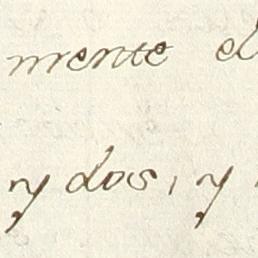 mente el
y dos, y